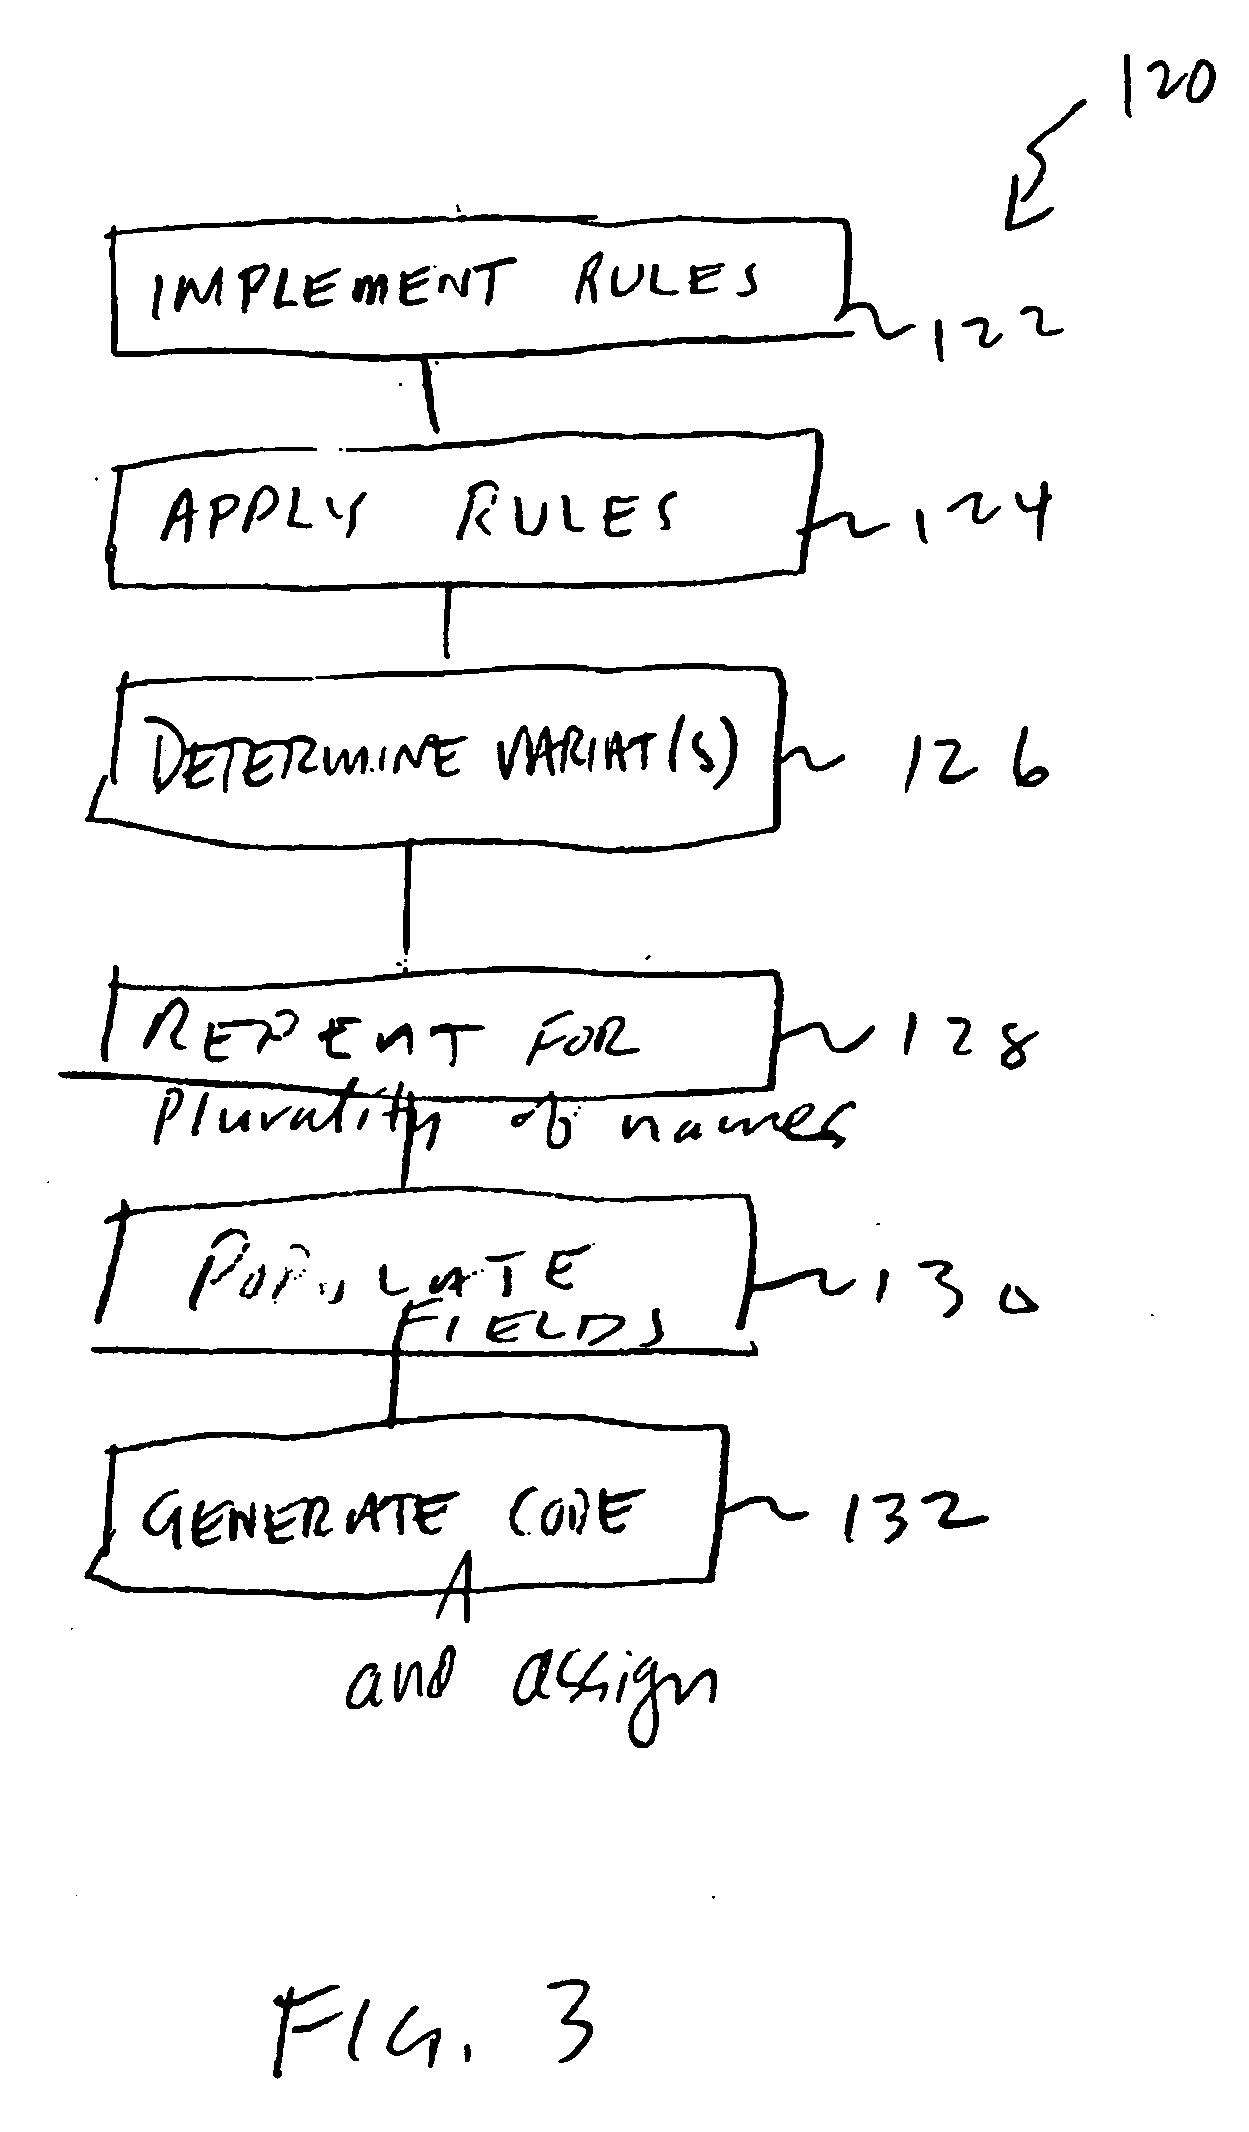 120
IMPLEMENT RULES
122
APPLY RULES
124
DETERMINE VARIAT(S)
126
REPEAT FOR
128
Plurality of names
POPULATE
FIELDS
130
GENERATE CODE
132
and assign
FIG. 3